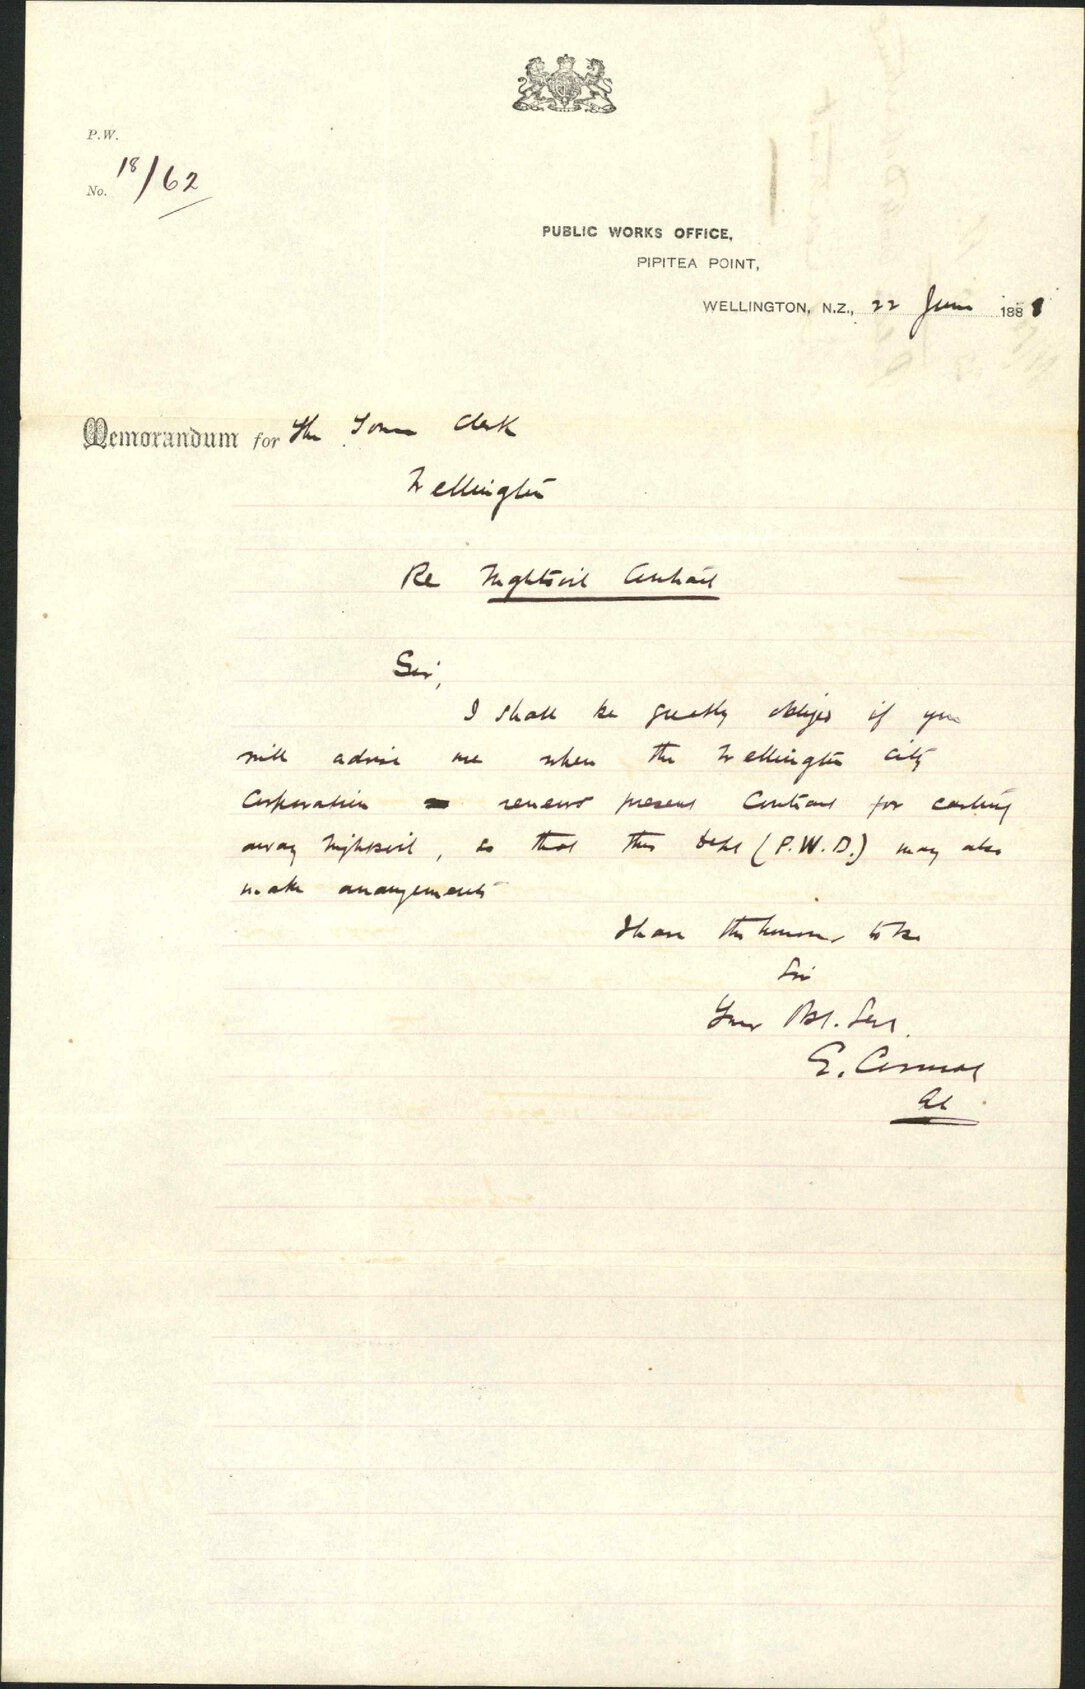 P.W.
No. 18/62
PUBLIC WORKS OFFICE,
PIPITEA POINT,
WELLINGTON, N.Z., 22 June 188
Memorandum for the Town Clerk
Wellington
Re Nightsoil Contract
Sir,
I shall be greatly obliged if you
will advise me when the Wellington City
Corporation renews present Contract for carting
away Nightsoil, so that this Dept (P.W.D.) may also
make arrangements
I have the honour to be
Sir
Your Obt. Servt.
E.